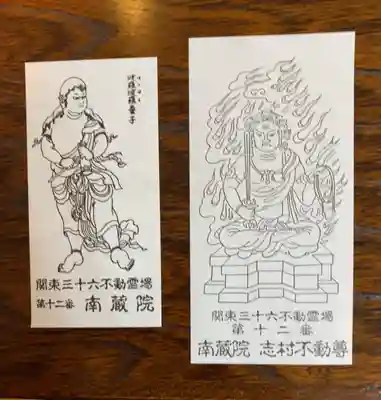 波羅波羅童子
関東三十六不動霊場
第十二番 南蔵院
関東三十六不動霊場
第十二番
南蔵院 志村不動尊